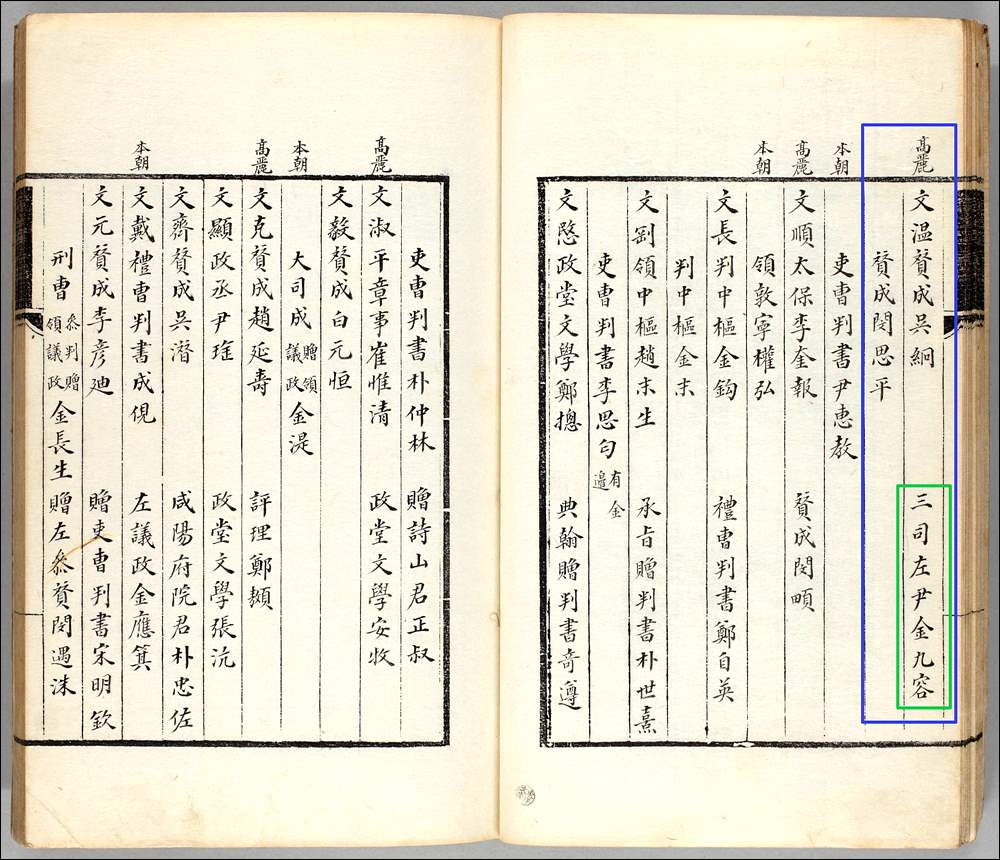 高麗 文温贊成吳絅 三司左尹金九容
贊成閔思平
本朝 吏曹判書尹惠敎
高麗 文順太保李奎報 贊成閔頔
本朝 領敦寧權弘
文長判中樞金鈎 禮曹判書鄭自英
判中樞金末
文剛領中樞趙末生 承旨贈判書朴世熹
吏曹判書李思勻 有金邊
文愍政堂文學鄭摠 典翰贈判書奇遵
吏曹判書朴仲林 贈詩山君正叔
高麗 文淑平章事崔惟清 政堂文學安牧
文毅贊成白元恒
本朝 大司成贈領議政金湜
高麗 文克贊成趙延壽 評理鄭頵
文顯政丞尹珤 政堂文學張沆
文齊贊成吳潛 咸陽府院君朴忠佐
本朝 文戴禮曹判書成俔 左議政金應箕
文元贊成李彦迪 贈吏曹判書宋明欽
刑曹參判贈領議政金長生 贈左參贊閔遇洙